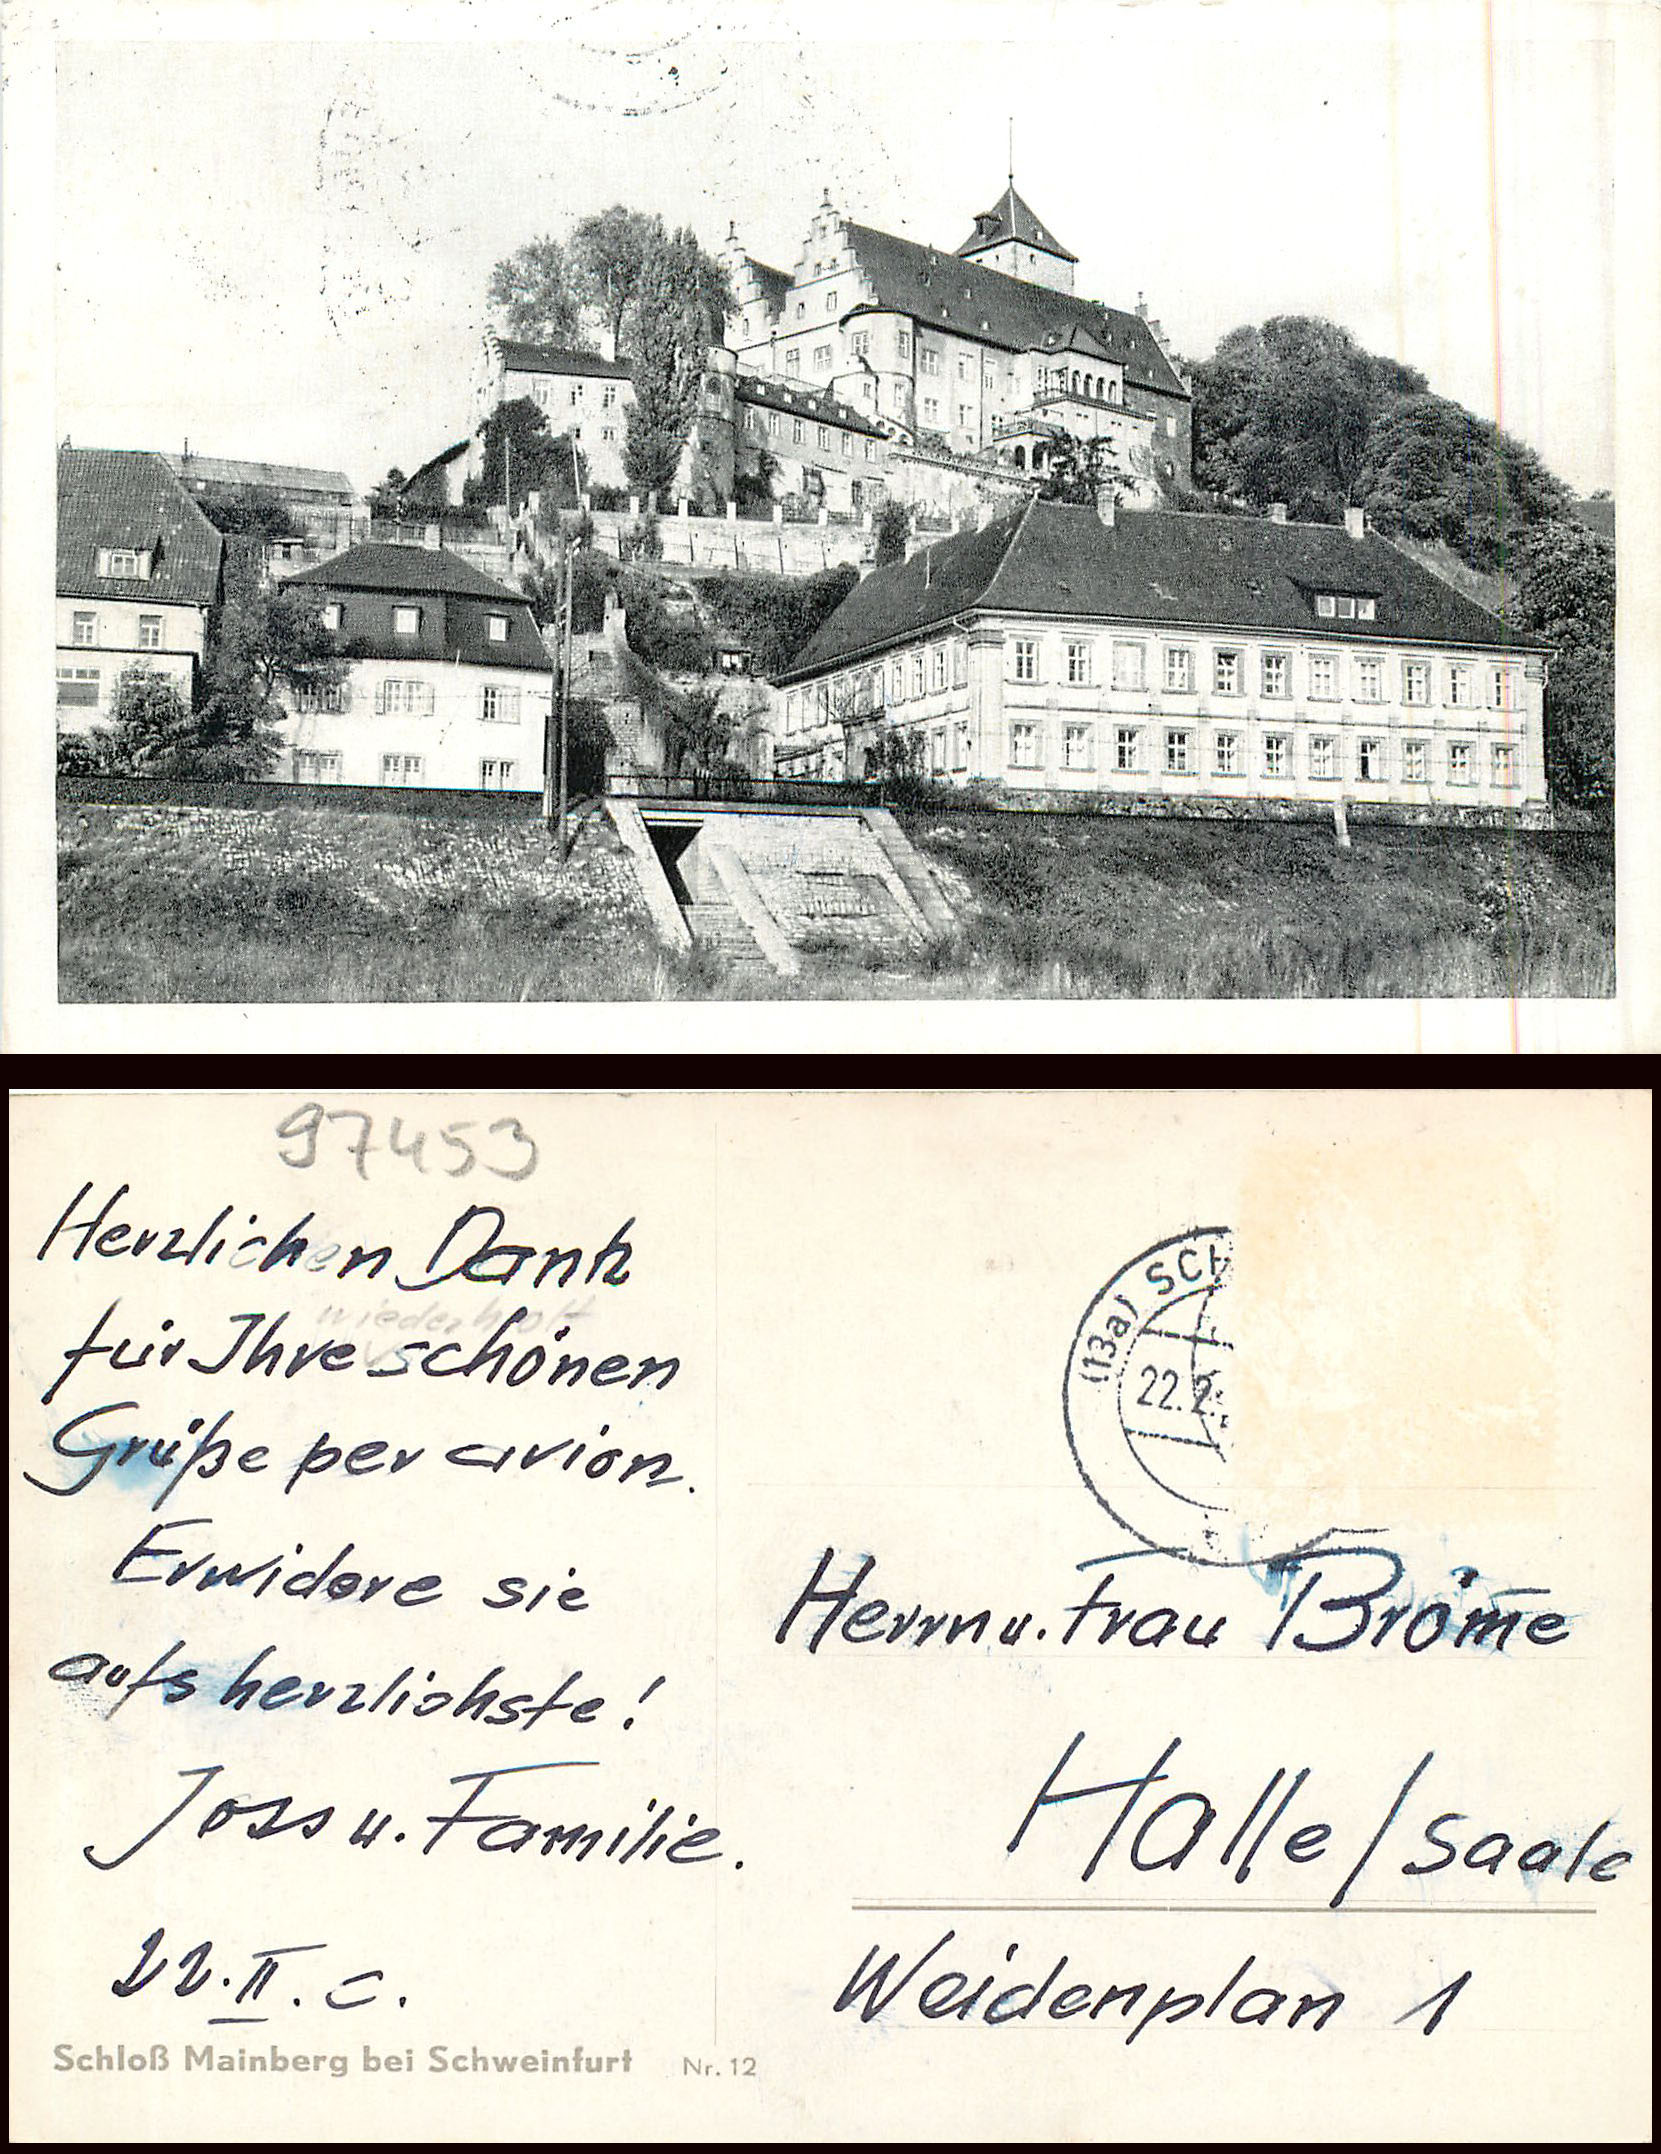 97453
Herzlichen Dank
wiederholt
für Ihre schönen
Grüße per avion.
Erwidere sie
aufs herzlichste!
Joss u. Familie.
22.II.c.
Schloß Mainberg bei Schweinfurt Nr. 12
(13a) SCH
22.2.
Herrn u. Frau Bröme
Halle/Saale
Weidenplan 1